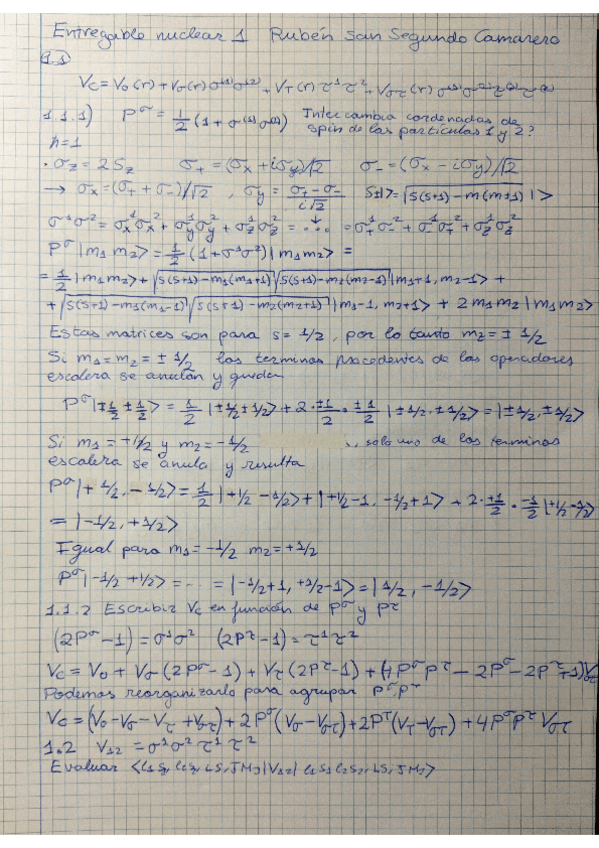 Entregable nuclear 1 Rubén San Segundo Camarero
1.1
Vc = V₀(r) + Vσ(r) σ⁽¹⁾σ⁽²⁾ + Vτ(r) τ¹τ² + Vστ(r) σ⁽¹⁾σ⁽²⁾τ⁽¹⁾τ⁽²⁾
1.1.1) P^σ = 1/2 (1 + σ⁽¹⁾σ⁽²⁾) Intercambia cordenadas de
spin de las particulas 1 y 2?
ħ=1
· σz = 2Sz σ₊ = (σx + iσy)/√2 σ₋ = (σx - iσy)/√2
→ σx = (σ₊ + σ₋)/√2 , σy = (σ₊ - σ₋)/(i√2) S±|> = √(s(s+1) - m(m±1)) |>
σ¹σ² = σx¹σx² + σy¹σy² + σz¹σz² = ... = σ₊¹σ₋² + σ₋¹σ₊² + σz¹σz²
P^σ |m₁ m₂> = 1/2 (1 + σ¹σ²) |m₁ m₂> =
= 1/2 |m₁ m₂> + √(s(s+1) - m₁(m₁+1)) √(s(s+1) - m₂(m₂-1)) |m₁+1, m₂-1> +
+ √(s(s+1) - m₁(m₁-1)) √(s(s+1) - m₂(m₂+1)) |m₁-1, m₂+1> + 2m₁m₂ |m₁ m₂>
Estas matrices son para s = 1/2, por lo tanto m₂ = ± 1/2
Si m₁ = m₂ = ± 1/2 los terminos procedentes de los operadores
escalera se anulan y queda
P^σ |±1/2 ±1/2> = 1/2 |±1/2 ±1/2> + 2 · ±1/2 · ±1/2 |±1/2, ±1/2> = |±1/2, ±1/2>
Si m₁ = +1/2 y m₂ = -1/2 , solo uno de los terminos
escalera se anula y resulta
P^σ |+1/2, -1/2> = 1/2 |+1/2 -1/2> + |+1/2-1, -1/2+1> + 2 · +1/2 · -1/2 |+1/2 -1/2>
= |-1/2, +1/2>
Igual para m₁ = -1/2 m₂ = +1/2
P^σ |-1/2 +1/2> = ... = |-1/2+1, +1/2-1> = |1/2, -1/2>
1.1.2 Escribir Vc en función de P^σ y P^τ
(2P^σ - 1) = σ¹σ² (2P^τ - 1) = τ¹τ²
Vc = V₀ + Vσ (2P^σ - 1) + Vτ (2P^τ - 1) + (4P^σP^τ - 2P^σ - 2P^τ + 1)Vστ
Podemos reorganizarlo para agrupar P^σ, P^τ
Vc = (V₀ - Vσ - Vτ + Vστ) + 2P^σ (Vσ - Vστ) + 2P^τ (Vτ - Vστ) + 4P^σP^τ Vστ
1.2 V₁₂ = σ¹σ² τ¹τ²
Evaluar <l₁s₁, l₂s₂, LS, JMJ| V₁₂ | l₁s₁ l₂s₂, LS, JMJ>